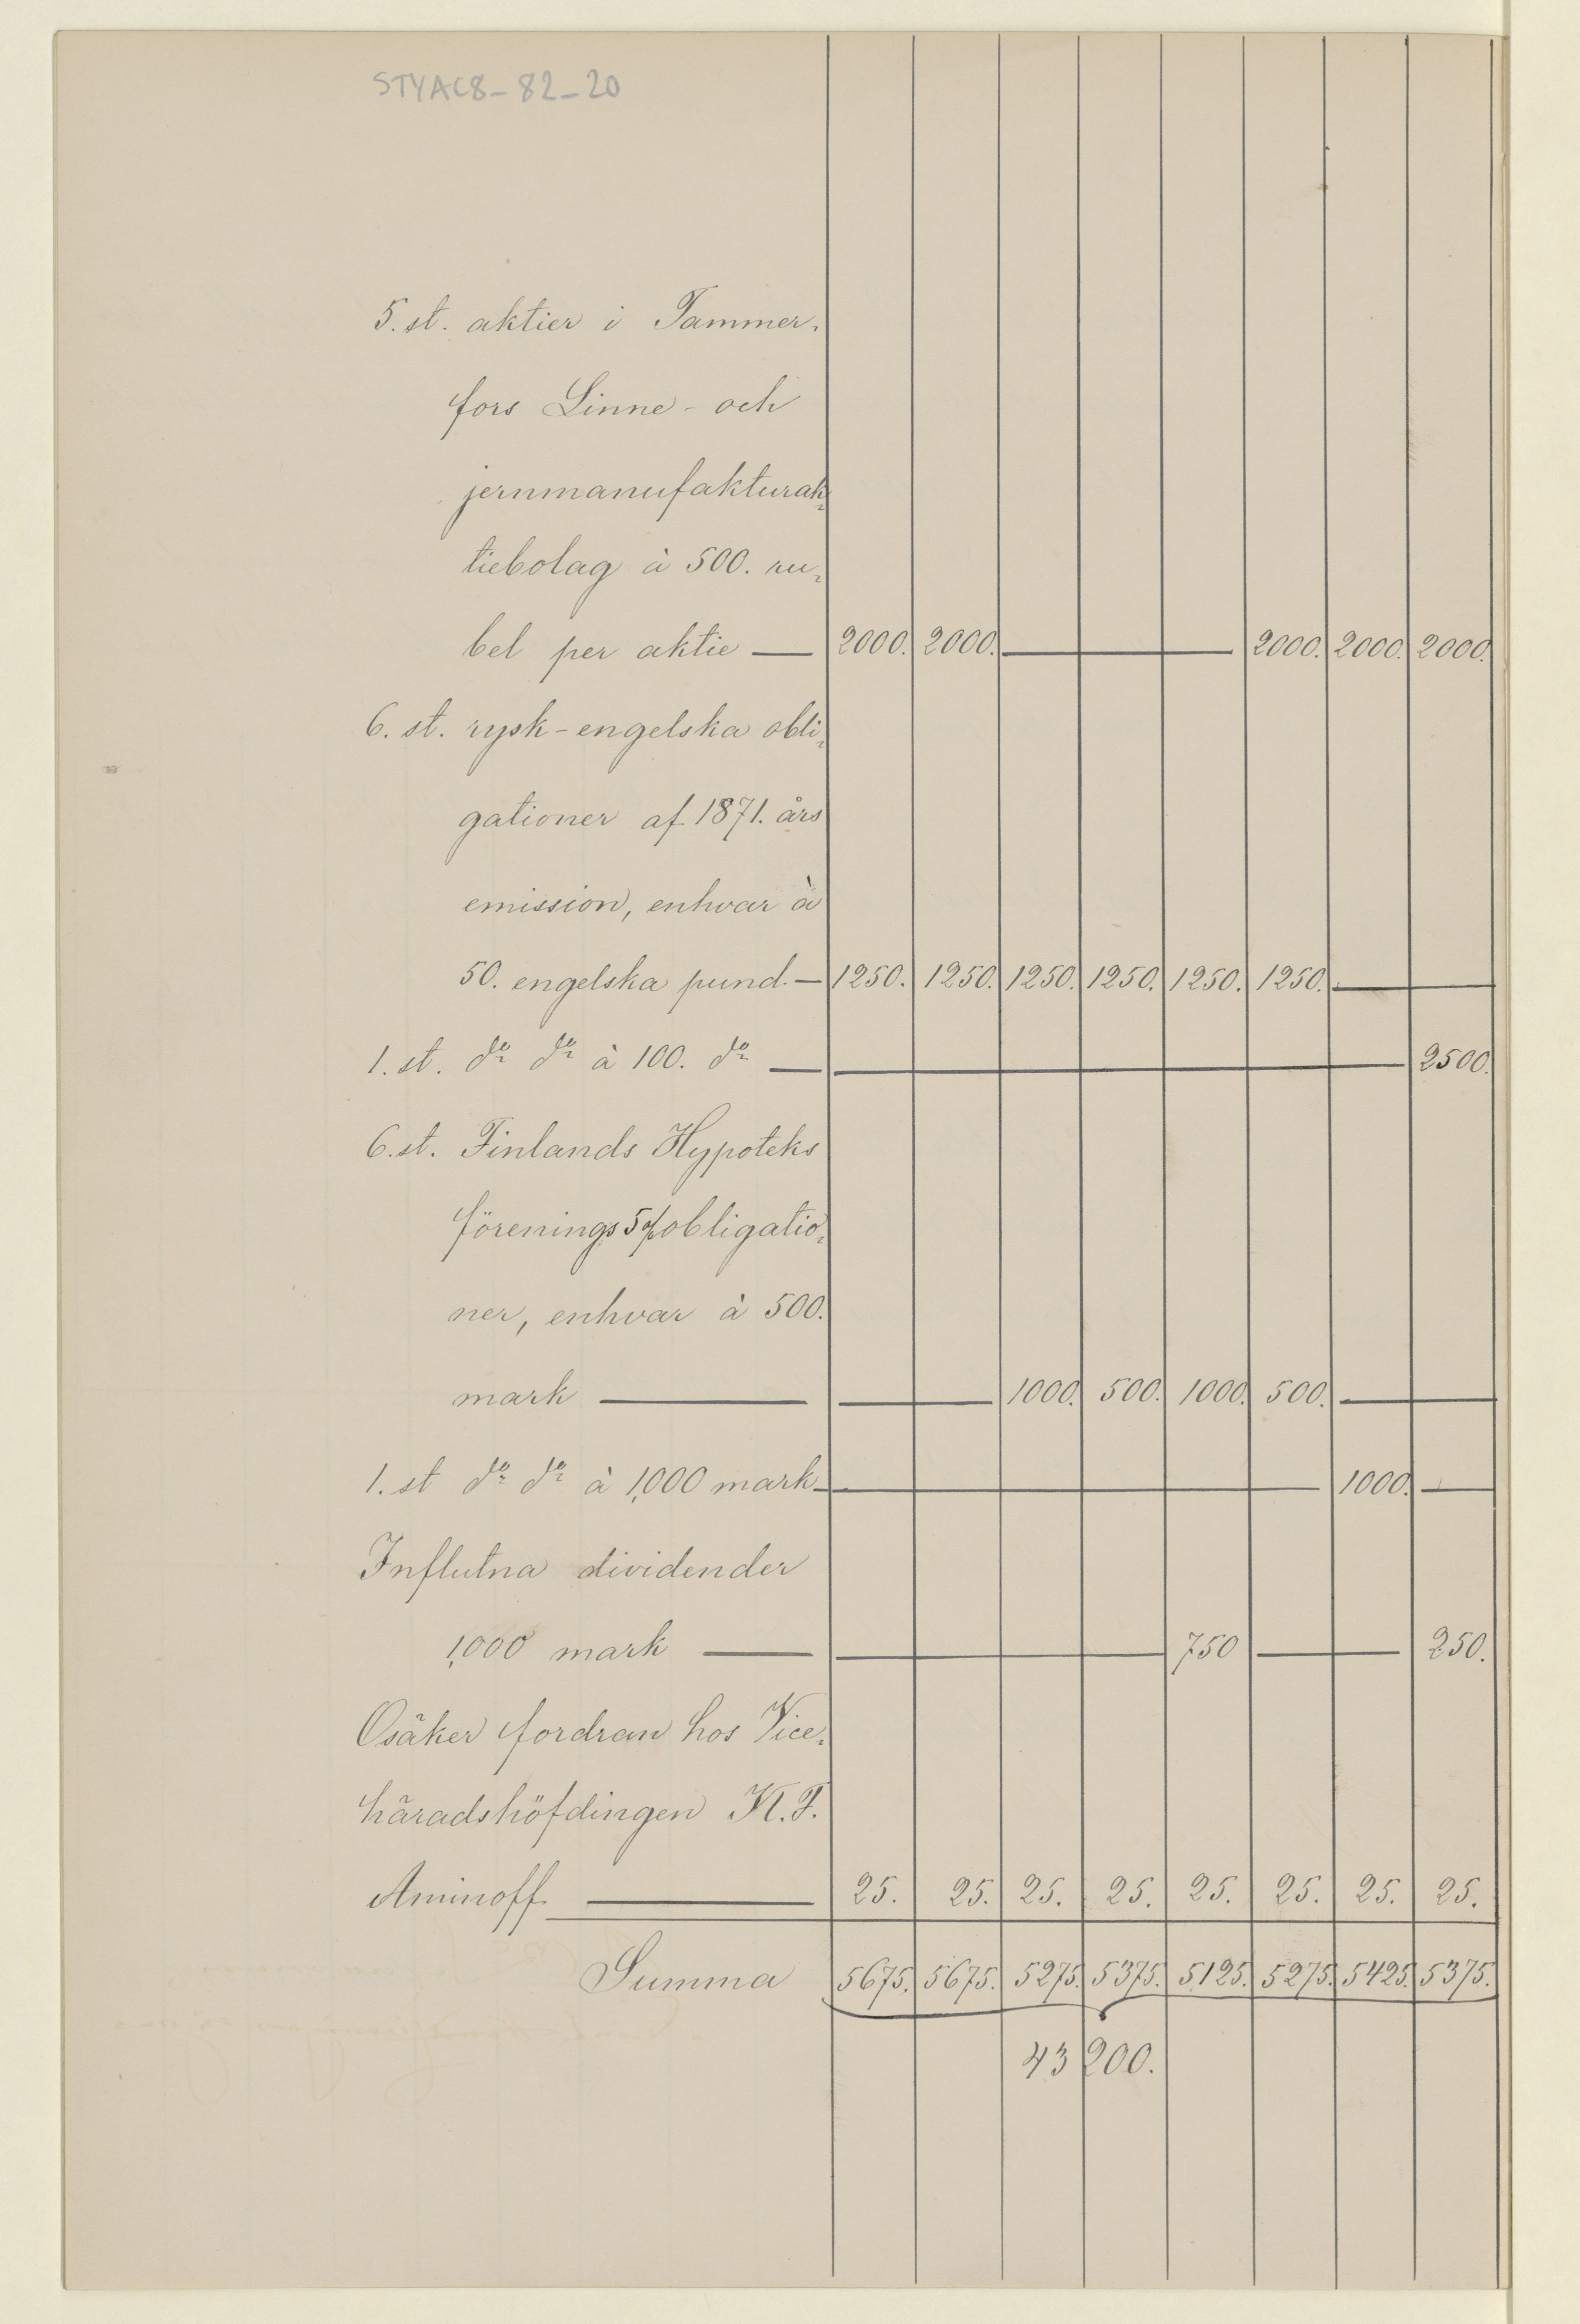 STYAC8-82-20
5. st. aktier i Tammer,
fors Linne- och
jernmanufakturak,
tiebolag à 500. ru,
bel per aktie — 2000. 2000. — 2000. 2000. 2000.
6. st. rysk-engelska obli,
gationer af 1871. års
emission, enhvar à
50. engelska pund. — 1250. 1250. 1250. 1250. 1250. 1250. —
1. st. do do à 100. do — 2500.
6. st. Finlands Hypoteks
förenings 5% obligatio,
ner, enhvar à 500.
mark — 1000. 500. 1000. 500. —
1. st do do à 1,000 mark — 1000. —
Influtna dividender
1,000 mark — 750 — 250.
Osäker fordran hos Vice,
häradshöfdingen K. F.
Aminoff. — 25. 25. 25. 25. 25. 25. 25. 25.
Summa 5675. 5675. 5275. 5375. 5125. 5275. 5425. 5375.
43 200.